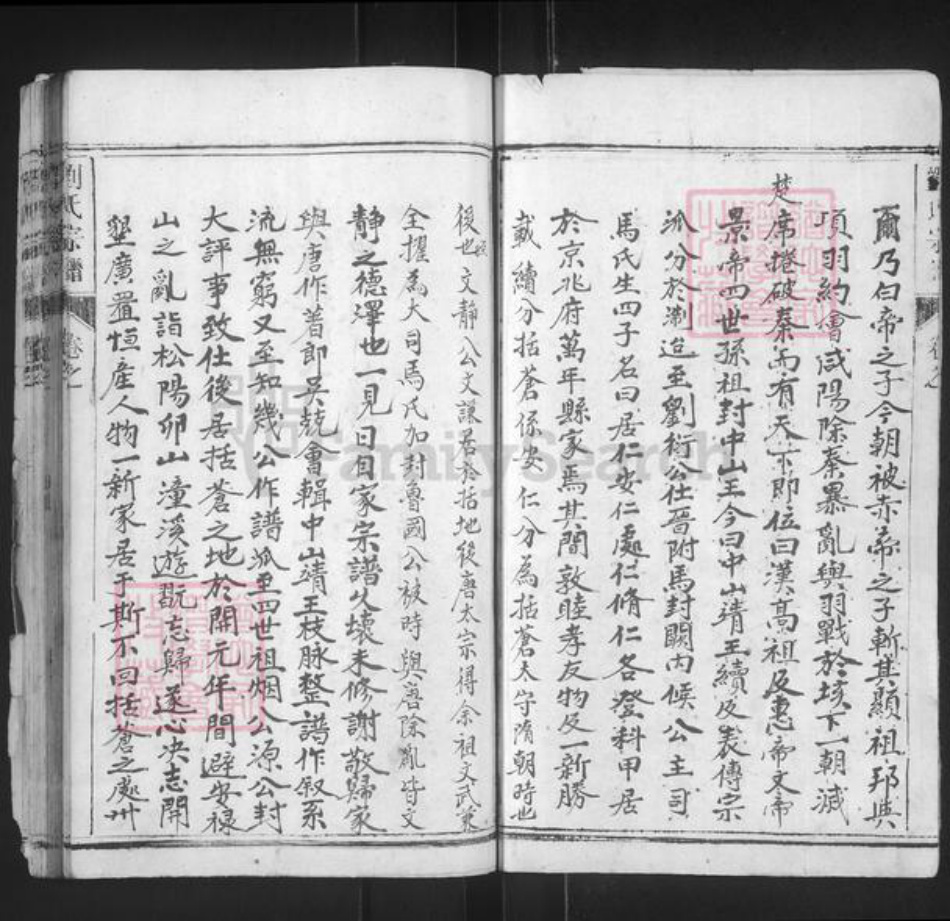 爾乃白帝之子今朝被赤帝之子斬其顯祖邦與
項羽約會咸陽除秦暴亂與羽戰於垓下一朝滅
楚席捲破秦而有天下即位曰漢高祖及惠帝文帝
景帝四世孫祖封中山王今曰中山靖王續及表傳宗
派分於澍迨至劉衍公仕晉附馬封關內候公主司
馬氏生四子名曰居仁安仁處仁脩仁各登科甲居
於京兆府萬年縣家焉其間敦睦孝友物及一新勝
載續分括蒼係安仁分為括蒼太守隋朝時也
後也文靜公文謙居於括地後唐太宗得余祖文武兼
全擢為大司馬氏加封魯國公被時與唐除亂皆文
靜之德澤也一見目家宗譜火壞未修謝敬歸家
與唐作著郎吳兢會輯中山靖王枝脉整譜作叙系
流無窮又至知幾公作譜派至四世祖烟公源公封
大評事致仕後居括蒼之地於開元年間避安祿
山之亂詣松陽卯山潼溪遊翫忘歸遂心決志開
墾廣置恒産人物一新家居于斯不回括蒼之處州
劉氏宗譜
卷之
FamilySearch